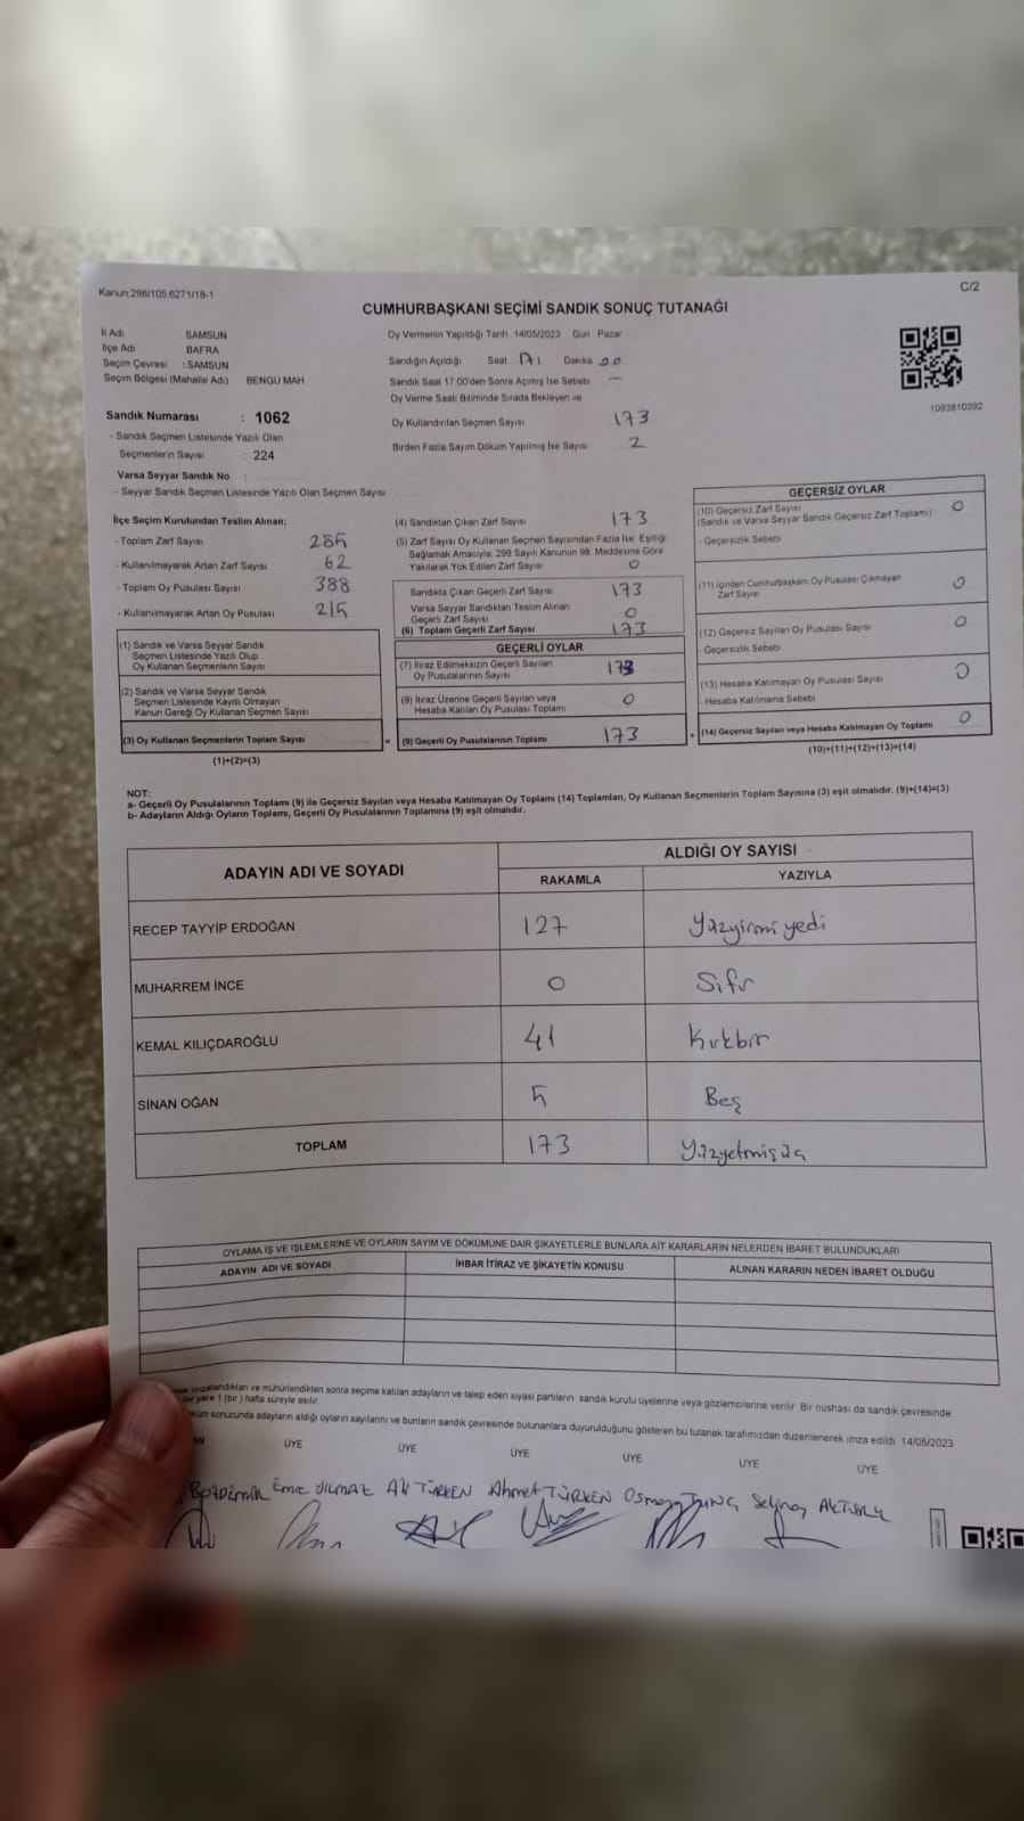 Kanun:298/105,6271/18-1
C/2
CUMHURBAŞKANI SEÇİMİ SANDIK SONUÇ TUTANAĞI
İl Adı SAMSUN
İlçe Adı BAFRA
Seçim Çevresi : SAMSUN
Seçim Bölgesi (Mahalle Adı) BENGÜ MAH
Sandık Numarası : 1062
- Sandık Seçmen Listesinde Yazılı Olan
Seçmenlerin Sayısı 224
Varsa Seyyar Sandık No
- Seyyar Sandık Seçmen Listesinde Yazılı Olan Seçmen Sayısı
Oy Vermenin Yapıldığı Tarih 14/05/2023 Gün Pazar
Sandığın Açıldığı Saat 17 Dakika 00
Sandık Saat 17.00'den Sonra Açılmış İse Sebebi —
Oy Verme Saati Bitiminde Sırada Bekleyen ve
Oy Kullandırılan Seçmen Sayısı 173
Birden Fazla Sayım Döküm Yapılmış İse Sayısı 2
1093810392
İlçe Seçim Kurulundan Teslim Alınan;
- Toplam Zarf Sayısı 285
- Kullanılmayarak Artan Zarf Sayısı 62
- Toplam Oy Pusulası Sayısı 388
- Kullanılmayarak Artan Oy Pusulası 215
(1) Sandık ve Varsa Seyyar Sandık
Seçmen Listesinde Yazılı Olup
Oy Kullanan Seçmenlerin Sayısı
(2) Sandık ve Varsa Seyyar Sandık
Seçmen Listesinde Kayıtlı Olmayan
Kanun Gereği Oy Kullanan Seçmen Sayısı
(3) Oy Kullanan Seçmenlerin Toplam Sayısı
(1)+(2)=(3)
(4) Sandıktan Çıkan Zarf Sayısı 173
(5) Zarf Sayısı Oy Kullanan Seçmen Sayısından Fazla İse, Eşitliği
Sağlamak Amacıyla, 298 Sayılı Kanunun 98. Maddesine Göre
Yakılarak Yok Edilen Zarf Sayısı 0
Sandıkta Çıkan Geçerli Zarf Sayısı 173
Varsa Seyyar Sandıktan Teslim Alınan
Geçerli Zarf Sayısı 0
(6) Toplam Geçerli Zarf Sayısı 173
GEÇERLİ OYLAR
(7) İtiraz Edilmeksizin Geçerli Sayılan
Oy Pusulalarının Sayısı 173
(8) İtiraz Üzerine Geçerli Sayılan veya
Hesaba Katılan Oy Pusulası Toplamı 0
= (9) Geçerli Oy Pusulalarının Toplamı 173
GEÇERSİZ OYLAR
(10) Geçersiz Zarf Sayısı 0
(Sandık ve Varsa Seyyar Sandık Geçersiz Zarf Toplamı)
- Geçersizlik Sebebi
(11) İçinden Cumhurbaşkanı Oy Pusulası Çıkmayan
Zarf Sayısı 0
(12) Geçersiz Sayılan Oy Pusulası Sayısı 0
- Geçersizlik Sebebi
(13) Hesaba Katılmayan Oy Pusulası Sayısı 0
- Hesaba Katılmama Sebebi
+ (14) Geçersiz Sayılan veya Hesaba Katılmayan Oy Toplamı 0
(10)+(11)+(12)+(13)=(14)
NOT:
a- Geçerli Oy Pusulalarının Toplamı (9) ile Geçersiz Sayılan veya Hesaba Katılmayan Oy Toplamı (14) Toplamları, Oy Kullanan Seçmenlerin Toplam Sayısına (3) eşit olmalıdır. (9)+(14)=(3)
b- Adayların Aldığı Oyların Toplamı, Geçerli Oy Pusulalarının Toplamına (9) eşit olmalıdır.
ADAYIN ADI VE SOYADI ALDIĞI OY SAYISI
RAKAMLA YAZIYLA
RECEP TAYYİP ERDOĞAN 127 Yüzyirmi yedi
MUHARREM İNCE 0 Sıfır
KEMAL KILIÇDAROĞLU 41 Kırkbir
SİNAN OĞAN 5 Beş
TOPLAM 173 Yüzyetmişüç
OYLAMA İŞ VE İŞLEMLERİNE VE OYLARIN SAYIM VE DÖKÜMÜNE DAİR ŞİKAYETLERLE BUNLARA AİT KARARLARIN NELERDEN İBARET BULUNDUKLARI
ADAYIN ADI VE SOYADI İHBAR İTİRAZ VE ŞİKAYETİN KONUSU ALINAN KARARIN NEDEN İBARET OLDUĞU
imzalandıktan ve mühürlendikten sonra seçime katılan adayların ve talep eden siyasi partilerin sandık kurulu üyelerine veya gözlemcilerine verilir. Bir nüshası da sandık çevresinde
yere 1 (bir) hafta süreyle asılır.
sonucunda adayların aldığı oyların sayılarını ve bunların sandık çevresinde bulunanlara duyurulduğunu gösteren bu tutanak tarafımızdan düzenlenerek imza edildi. 14/05/2023
ÜYE ÜYE ÜYE ÜYE ÜYE ÜYE
Emre YILMAZ Ali TÜRKEN Ahmet TÜRKEN Osman TUNÇ